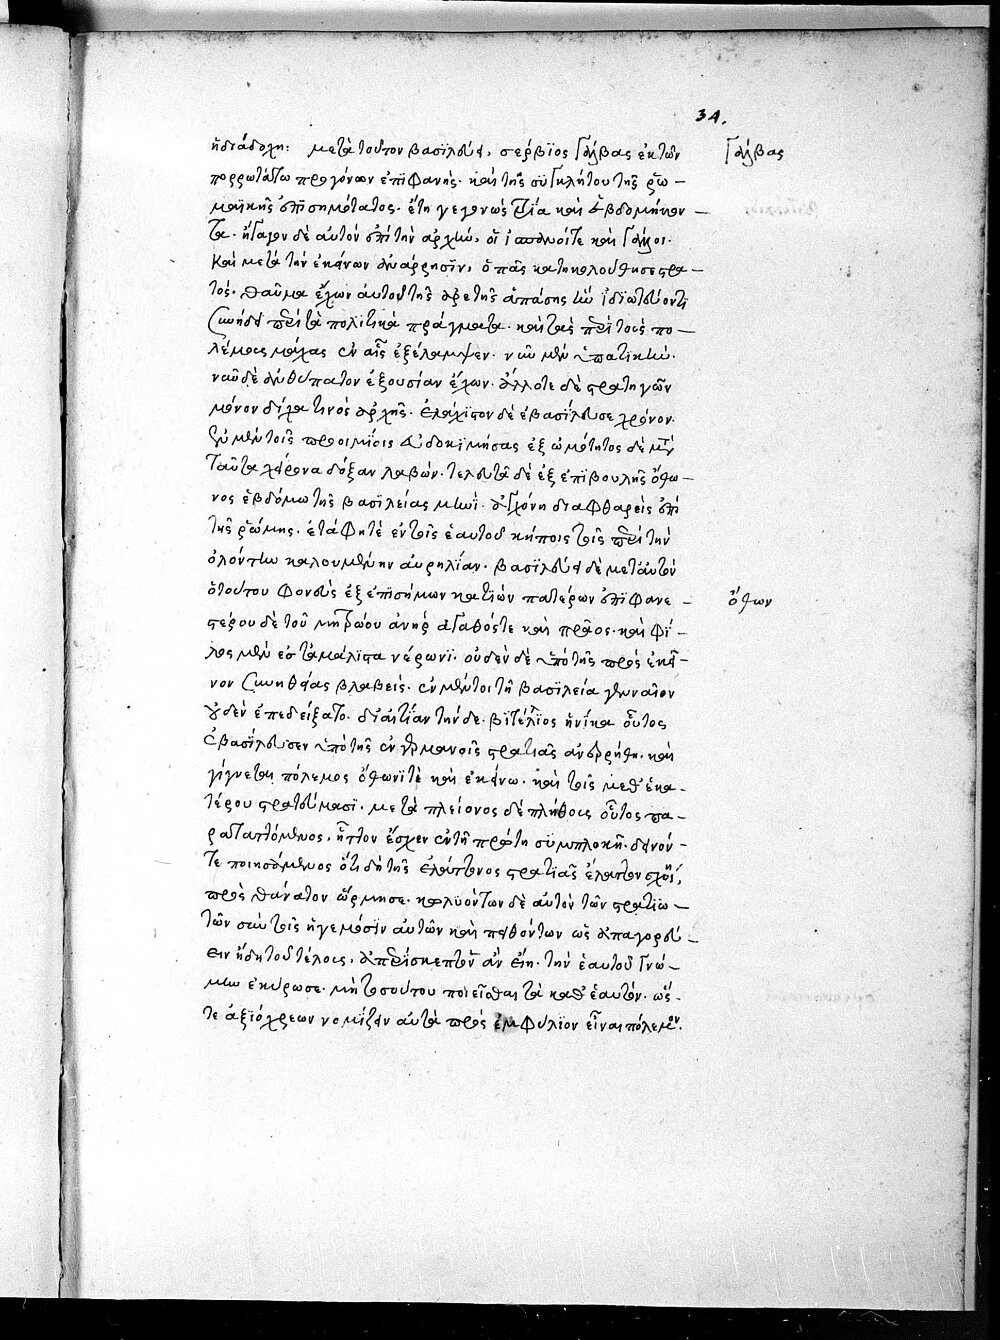 34.
ἡ διάδοχη: μετὰ τοῦτον βασιλεύει, σέρβϊος Γάλβας ἐκ τῶν
Γάλβας
πορρωτάτω προγόνων ἐπϊφανής. καὶ τῆς συγκλήτου τῆς ῥω-
μαϊκῆς ἐπισημότατος. ἔτη γεγονὼς τρία καὶ ἑβδομήκον-
τα. ἤγαγον δὲ αὐτὸν ἐπὶ τὴν ἀρχὴν, οἵ καὶ Γάλλοι.
καὶ μετὰ τὴν ἐκείνων ἀνάρρησϊν, ὁ πᾶς κατηκολούθησε στρα-
τός. θαῦμα ἔχων αὐτοῦ τῆς ἀρετῆς ἁπάσης ἣν ἰδιωτεύοντι
συνῄδει περὶ τὰ πολιτικὰ πράγματα. καὶ τὰς περὶ τοὺς πο-
λέμους μάχας ἐν αἷς ἐξέλαμψεν. νῦν μὲν ὑπατικὴν.
νῦν δὲ ἀνθύπατον ἐξουσίαν ἔχων. ἄλλοτε δὲ στρατηγῶν
μόνον δίχα τινὸς ἀρχῆς. ἐλάχιστον δὲ ἐβασίλευσε χρόνον.
ἐν μὲν τοῖς προοιμίοις εὐδοκϊμήσας ἐξ ὠμότητος δὲ μετὰ
ταῦτα χείρονα δόξαν λαβών. τελευτᾶ δὲ ἐξ ἐπιβουλῆς ὄθω-
νος ἑβδόμω τῆς βασϊλείας μηνΐ. ἀγχόνη διαφθαρεὶς ἐπὶ
τῆς ῥώμης. ἐτάφη τὲ ἐν τοῖς ἑαυτοῦ κήποις τοῖς περὶ τὴν
ὁδὸν τὴν καλουμένην αὐρηλίαν. βασιλεύει δὲ μετ' αὐτὸν
ὁ τούτου φονεὺς ἐξ ἐπϊσήμων κατιὼν πατέρων ἐπϊφανε-
ὄθων
στέρου δὲ τοῦ μητρώου ἀνὴρ ἀγαθός τε καὶ πρᾶος. καὶ φί-
λος μὲν ἐς τὰ μάλιστα νέρωνϊ. οὐδὲν δὲ ὑπὸ τῆς πρὸς ἐκεῖ-
νον συνηθείας βλαβείς. ἐν μέντοι τῆ βασϊλεία γενναῖον
οὐδὲν ἐπεδείξατο. δι' αἰτίαν τήν δε. βιτέλλϊος ἡνίκα οὗτος
ἐβασΐλευσεν ὑπὸ τῆς ἐν γερμανοῖς στρατιᾶς ἀνερρήθη. καὶ
γίγνεται πόλεμος ὄθωνϊ τὲ καὶ ἐκείνω. καὶ τοῖς μεθ' ἑκα-
τέρου στρατεύμασϊ. μετὰ πλείονος δὲ πλήθους οὗτος πα-
ραταττόμενος, ἧττον ἔσχεν ἐν τῆ πρώτη συμπλοκῆ. δεινόν-
τε ποιησάμενος ὅτι δὴ τῆς ἐλάττονος στρατιᾶς ἔλαττον σχοίη,
πρὸς θάνατον ὥρμησε. κωλυόντων δὲ αὐτὸν τῶν στρατιω-
τῶν σὺν τοῖς ἡγεμόσϊν αὐτῶν καὶ πειθόντων ὡς ἀπαγορεύ-
ειν ἤδη τοῦ τέλους, ἀπερίσκεπτον ἂν εἴη. τὴν ἑαυτοῦ γνώ-
μην ἐκύρωσε. μὴ τοσούτου ποιεῖσθαι τὰ καθ' ἑαυτόν. ὥς-
τε ἀξιόχρεων νομίζειν αὐτὰ πρὸς ἐμφύλϊον εἶναι πόλεμον.